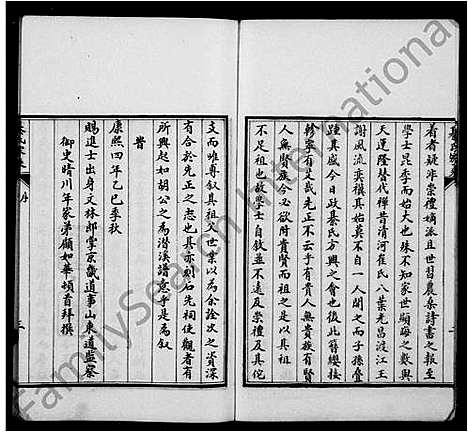 看者疑非崇禮嫡派且世習農桑詩書之報至
學士昆季而始大也殊不知家世顯晦之數與
天運隆替代禪昔清河崔氏八葉光昌渡江王
謝風流奕襈其始莫不自一人開之而子孫疊
踵其盛今日政綦氏方興之會也後此簪纓接
軫寧有艾哉先正不云乎有貴人無貴族有賢
人無賢族今必欲附貴賢而祖之是以其祖
不足祖也故學士自敘並不遠及崇禮及其佗
文而唯專叙其祖父世業以為余詮次之資深
有合於先正之志也其亦刻石先祠使觀者有
所興起如胡公之為潛溪譜意乎是為叙
旹
康熙四年乙巳季秋
賜進士出身文林郎掌京畿道事山東道監察
御史晴川年家弟顧如華頓首拜撰
序
三
FamilySearch International